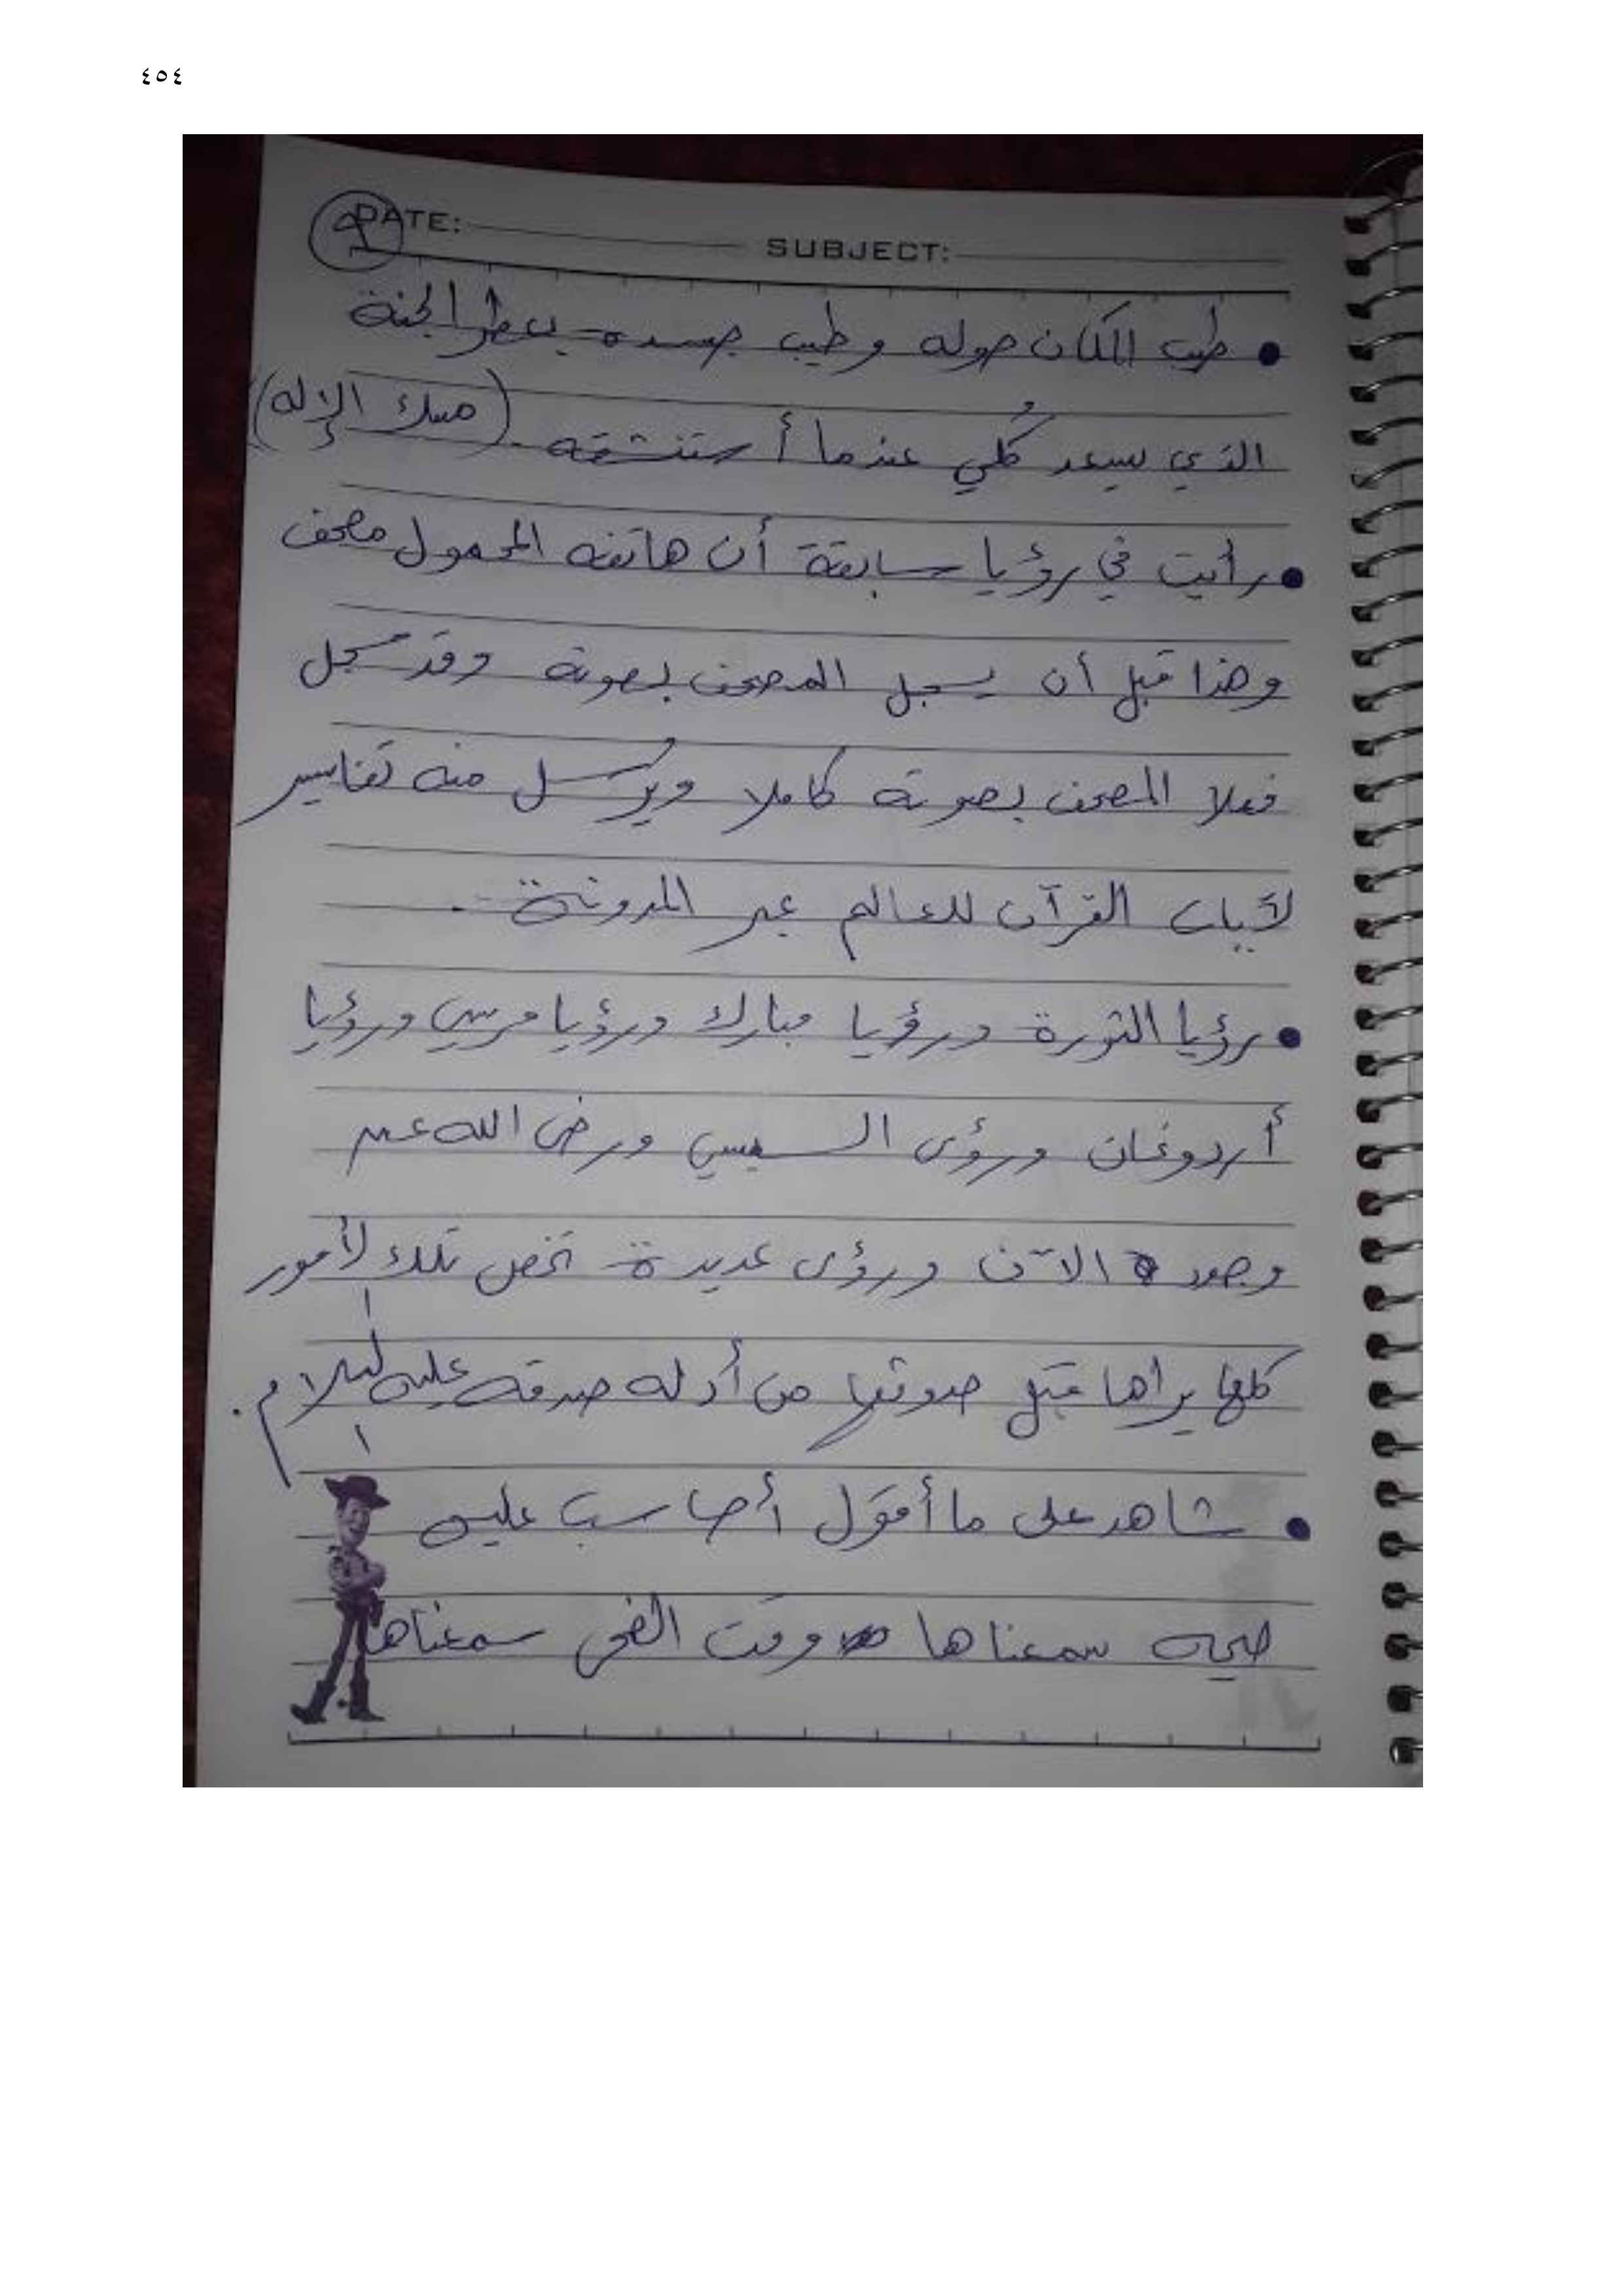 ٤٥٤
٩
DATE:
SUBJECT:
• طيب المكان حوله وطيب جسده بعطر الجنة
الذي يسعد كُلي عندما أستنشقه (مسك الإله)
• رأيت في رؤيا سابقة أن هاتفه المحمول مصحف
وهذا قبل أن يسجل المصحف بصوته وقد سجل
فعلا المصحف بصوته كاملا ويُرسل منه تفاسير
لآيات القرآن للعالم عبر المدونة .
• رؤيا الثورة ورؤيا مبارك ورؤيا مرسي ورؤيا
أردوغان ورؤى السيسي ورضى الله عنهم
وجوده الآن ورؤى عديدة تخص تلك الأمور
كلها يراها قبل حدوثها من أدلة صدقه عليه السلام .
• شاهد على ما أقول أحاسب عليه
صيحه سمعناها وقت الضحى سمعناها